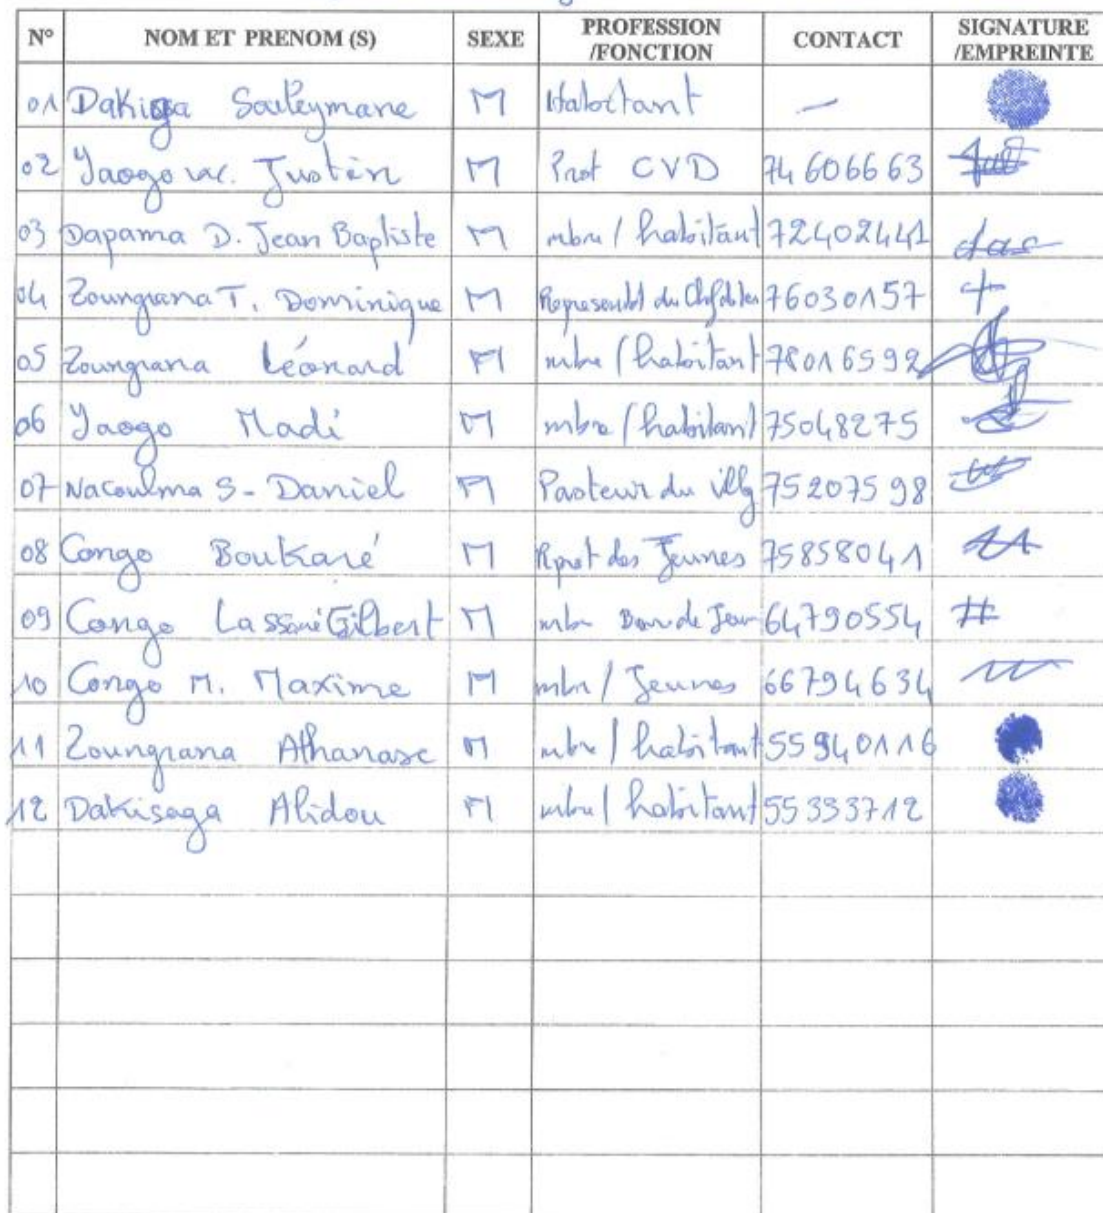 N° NOM ET PRENOM (S) SEXE PROFESSION /FONCTION CONTACT SIGNATURE /EMPREINTE
01 Dakisga Souleymane M Habitant -
02 Yaogo Justin M Prst CVD 74606663
03 Dapama D. Jean Baptiste M mbre / habitant 72402441
04 Zoungrana T. Dominique M 76030157 +
05 Zoungrana Léonard M mbre / habitant 78016592
06 Yaogo Madi M mbre / habitant 75048275
07 Nacoulma S- Daniel M Pasteur du villg 75207598
08 Congo Boukaré M Rprst des Jeunes 75858041
09 Congo Lassané Gilbert M mbre 64790554 #
10 Congo M. Maxime M mbre / Jeunes 66794634
11 Zoungrana Athanase M mbre / habitant 55940116
12 Dakisaga Alidou M mbre / habitant 55333712